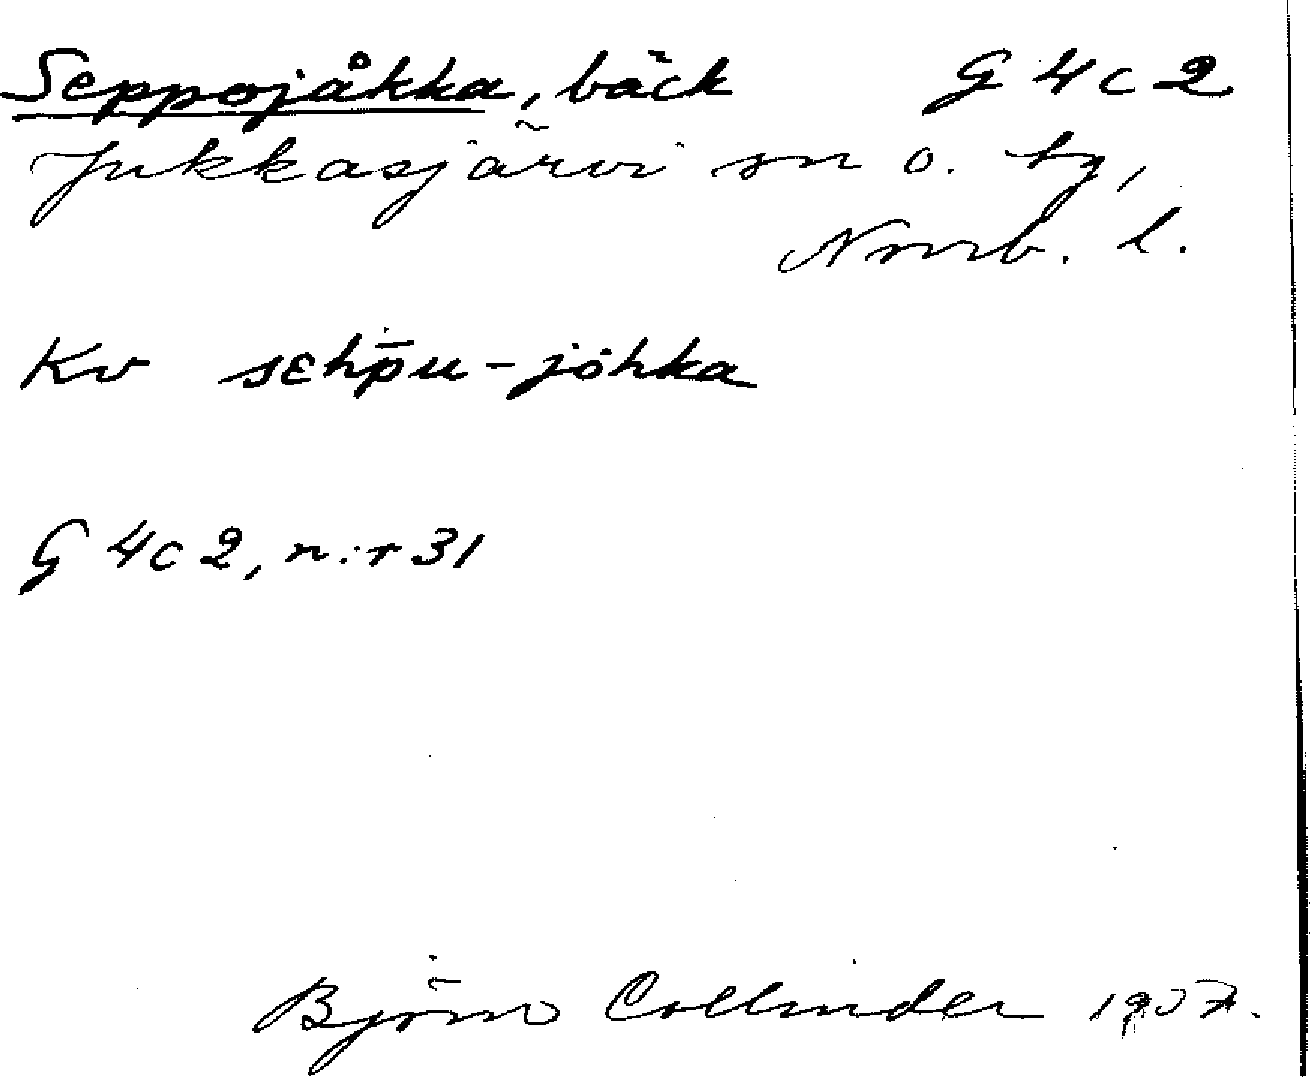 Seppojåkka, bäck G 4 c 2
Jukkasjärvi sn o. tg,
Norrb. l.
Kv sɛhp̄u-jòhka
G 4 c 2, n:r 31
Björn Collinder